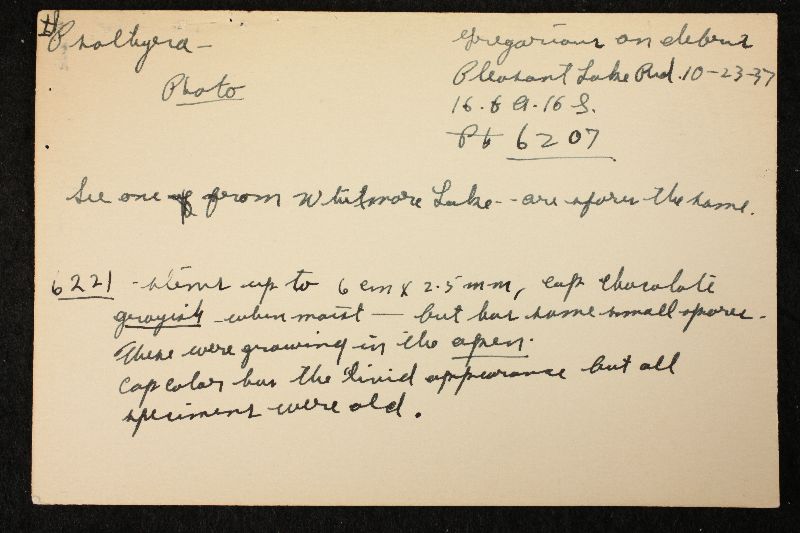 Psathyra –
Photo
gregarious on debris
Pleasant Lake Rd. 10-23-37
16. f 9.16 S.
6207
See one from Whitmore Lake - are spores the same.
6221 - stems up to 6 cm x 2.5 mm, cap chocolate
grayish when moist — but has same small spores.
These were growing in the open.
Cap color has the livid appearance but all
specimens were old.